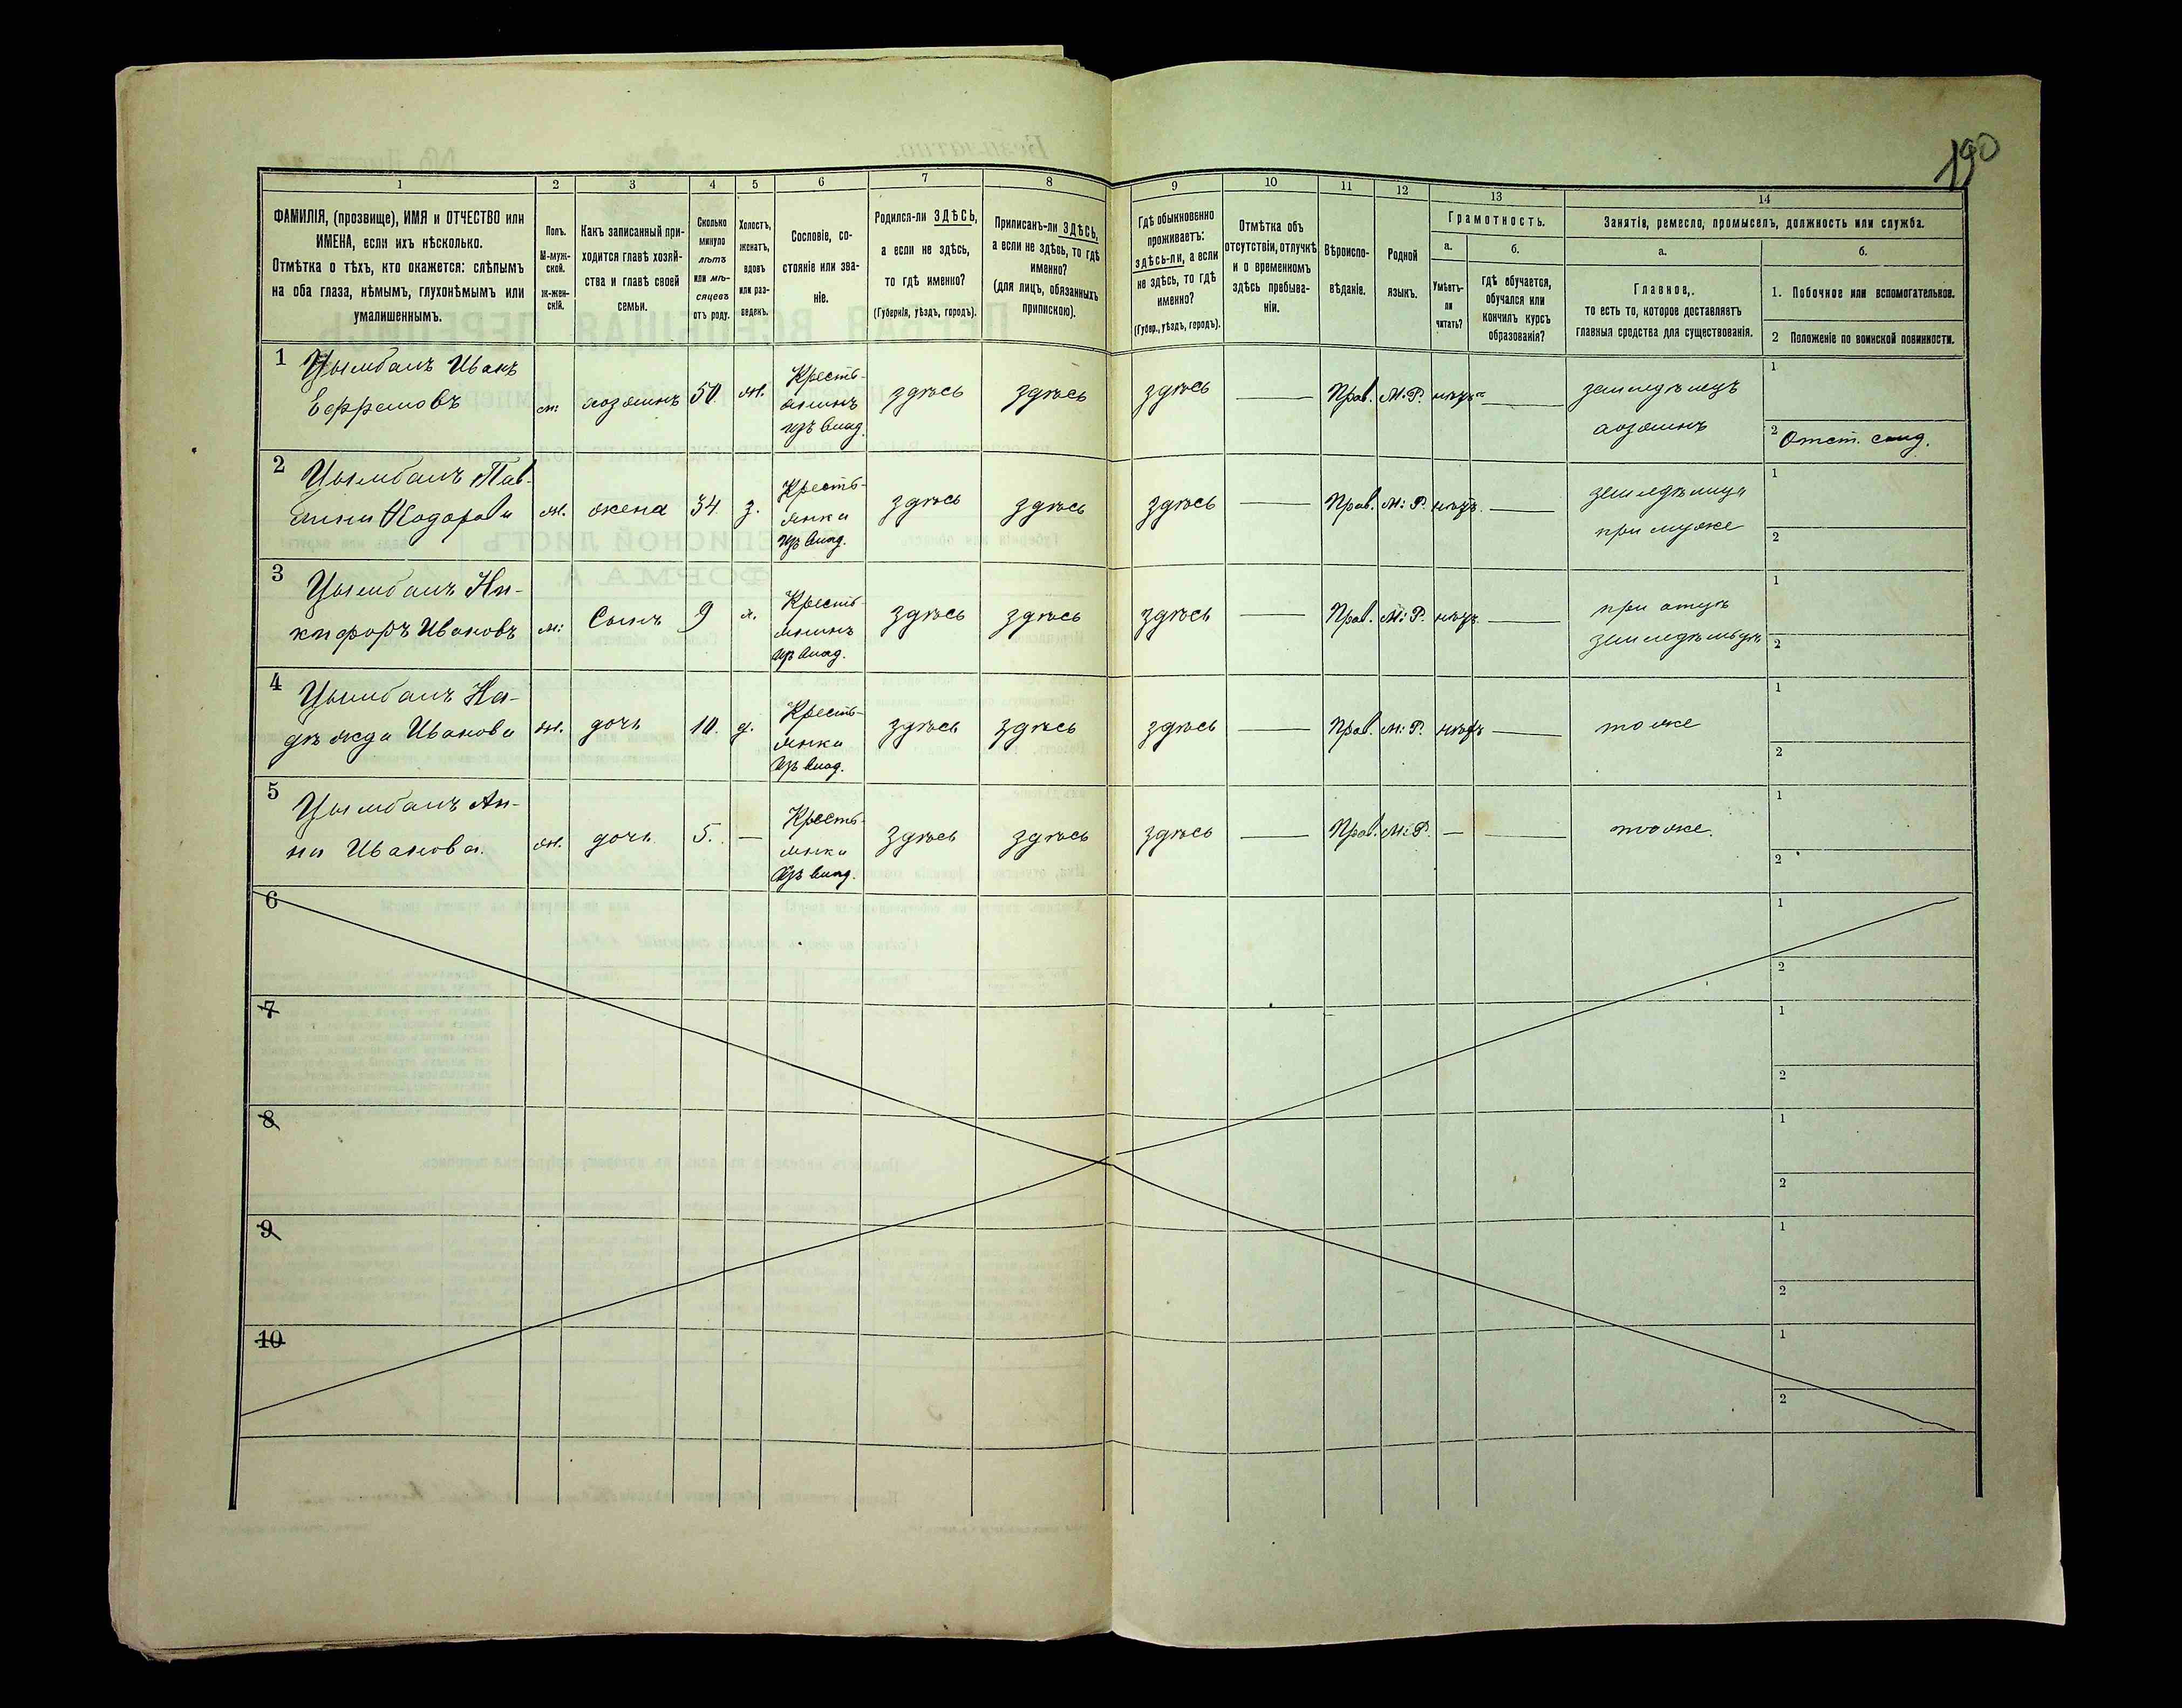 190
1 2 3 4 5 6 7 8 9 10 11 12 13 14
ФАМИЛІЯ, (прозвище), ИМЯ и ОТЧЕСТВО или
ИМЕНА, если ихъ нѣсколько.
Отмѣтка о тѣхъ, кто окажется: слѣпымъ
на оба глаза, нѣмымъ, глухонѣмымъ или
умалишеннымъ.
Полъ.
М-муж-
ской.
Ж-жен-
скій.
Какъ записанный при-
ходится главѣ хозяй-
ства и главѣ своей
семьи.
Сколько
минуло
лѣтъ
или мѣ-
сяцевъ
отъ роду.
Холостъ,
женатъ,
вдовъ
или раз-
веденъ.
Сословіе, со-
стояніе или зва-
ніе.
Родился-ли ЗДѢСЬ,
а если не здѣсь,
то гдѣ именно?
(Губернія, уѣздъ, городъ).
Приписанъ-ли ЗДѢСЬ,
а если не здѣсь, то гдѣ
именно?
(для лицъ, обязанныхъ
припискою).
Гдѣ обыкновенно
проживаетъ:
здѣсь-ли, а если
не здѣсь, то гдѣ
именно?
(Губер., уѣздъ, городъ).
Отмѣтка объ
отсутствіи, отлучкѣ
и о временномъ
здѣсь пребыва-
ніи.
Вѣроиспо-
вѣданіе.
Родной
языкъ.
Грамотность.
а.
Умѣетъ-
ли
читать?
б.
гдѣ обучается,
обучался или
кончилъ курсъ
образованія?
Занятія, ремесло, промыселъ, должность или служба.
а.
Главное,
то есть то, которое доставляетъ
главныя средства для существованія.
б.
1. Побочное или вспомогательное.
2 Положеніе по воинской повинности.
1 Цымбалъ Иванъ
Ефремовъ
м: хозяинъ 50 ж.
Кресть-
янинъ
изъ влад.
здѣсь здѣсь здѣсь — Прав. М:Р. нѣтъ —
земледѣлецъ
хозяинъ
1
2 Отст. солд.
2 Цымбалъ Пав-
лина Ѳодорова
ж. жена 34 з.
Кресть-
янка
изъ влад.
здѣсь здѣсь здѣсь — Прав. М:Р. нѣтъ. —
земледѣлица
при мужѣ
1
2
3 Цымбалъ Ни-
кифоръ Ивановъ
м: Сынъ 9 х.
Кресть-
янинъ
изъ влад.
здѣсь здѣсь здѣсь — Прав. М:Р. нѣтъ —
при отцѣ
земледѣльцѣ
1
2
4 Цымбалъ На-
дѣжда Иванова
ж. дочь 10. д.
Кресть-
янка
изъ влад.
здѣсь здѣсь здѣсь — Прав. М:Р. нѣтъ —
тоже
1
2
5 Цымбалъ Ан-
на Иванова.
ж. дочь 5. —
Кресть-
янка
изъ влад.
здѣсь здѣсь здѣсь — Прав. М:Р. — —
тоже.
1
2
6
1
2
7
1
2
8
1
2
9
1
2
10
1
2